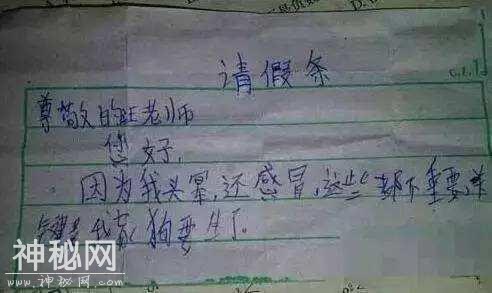 请假条
尊敬的旺老师
您好,
因为我头晕,还感冒,这些都不重要,关
键是我家狗要生了。
神秘网
www.shenmiw.com